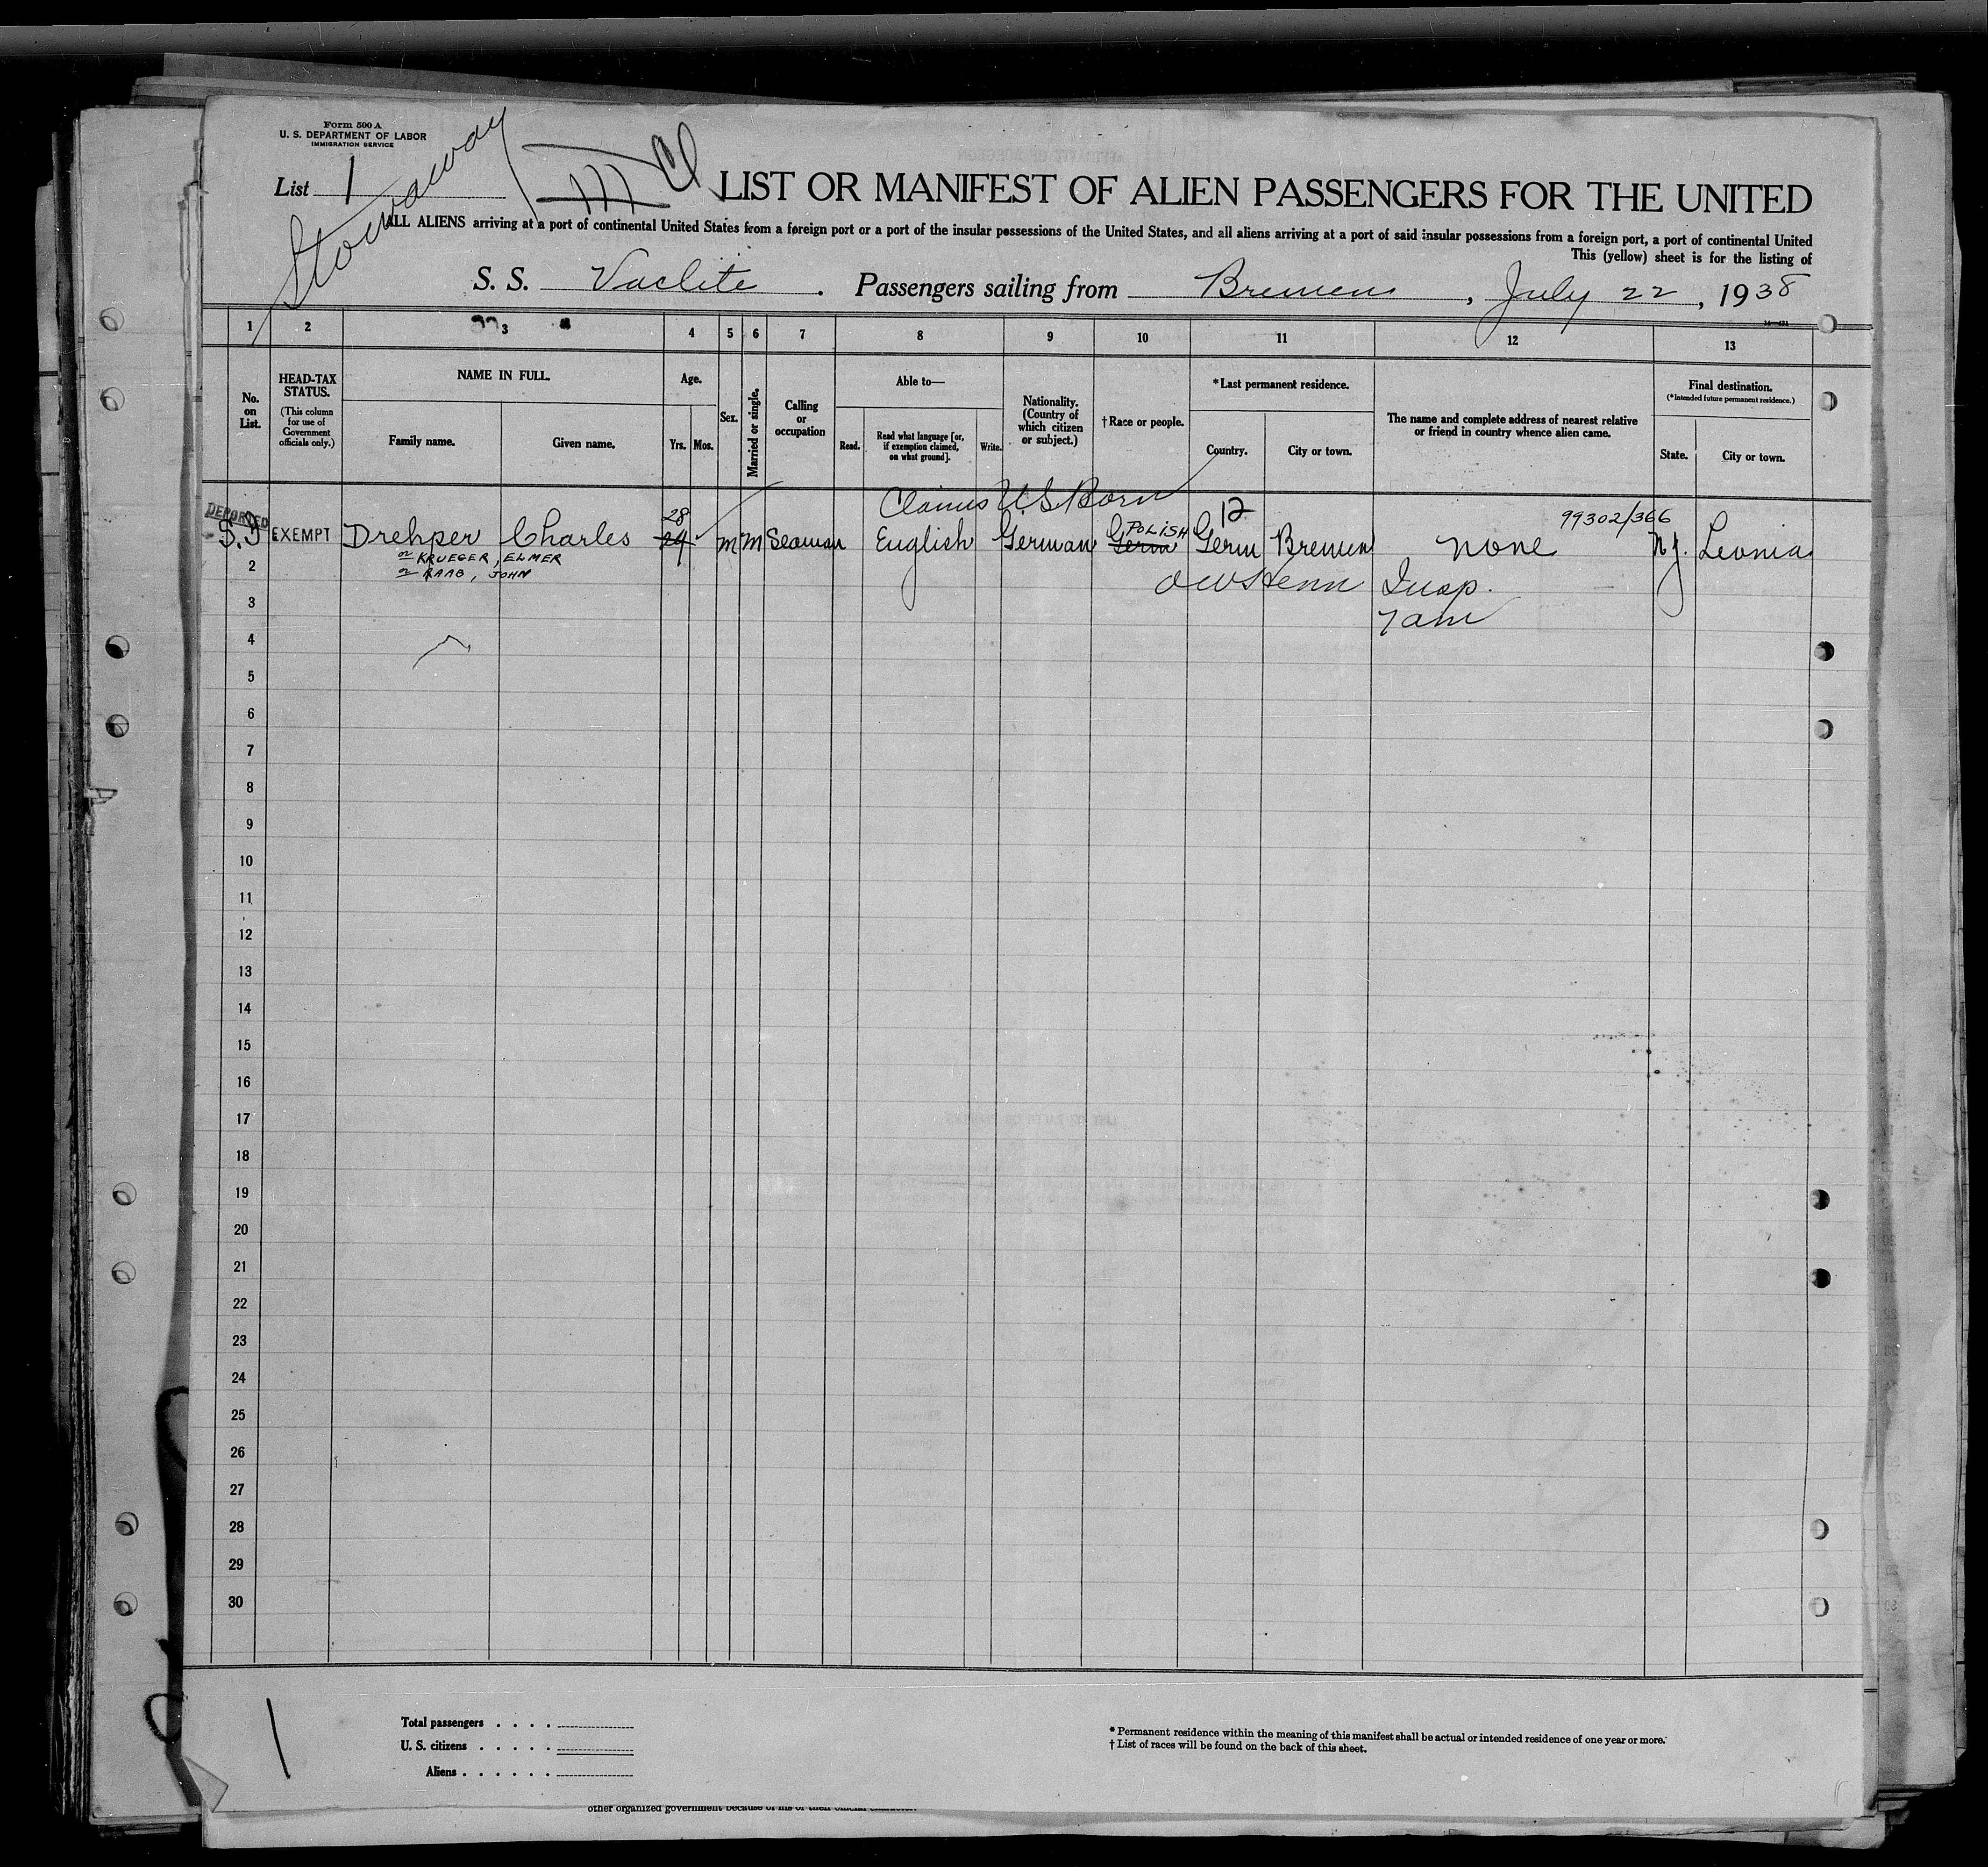 Form 500 A
U. S. DEPARTMENT OF LABOR
IMMIGRATION SERVICE
List 1
Stowaway
LIST OR MANIFEST OF ALIEN PASSENGERS FOR THE UNITED
ALL ALIENS arriving at a port of continental United States from a foreign port or a port of the insular possessions of the United States, and all aliens arriving at a port of said insular possessions from a foreign port, a port of continental United
This (yellow) sheet is for the listing of
S. S. Vaclite. Passengers sailing from Bremen, July 22, 1938
1 2 3 4 5 6 7 8 9 10 11 12 13
No. on List.
HEAD-TAX STATUS.
(This column for use of Government officials only.)
NAME IN FULL.
Family name. Given name.
Age.
Yrs. Mos.
Sex.
Married or single.
Calling or occupation
Able to—
Read. Read what language [or, if exemption claimed, on what ground]. Write.
Nationality. (Country of which citizen or subject.)
†Race or people.
*Last permanent residence.
Country. City or town.
The name and complete address of nearest relative or friend in country whence alien came.
Final destination.
(*Intended future permanent residence.)
State. City or town.
Claims U S Born
DEPORTED
28
12
99302/366
POLISH
S.I EXEMPT Drehper Charles 24 m m Seaman English German Germ Germ Bremen none N.J. Leonia
or KRUEGER, ELMER
or RAAB, JOHN
Insp.
2
3
4
5
6
7
8
9
10
11
12
13
14
15
16
17
18
19
20
21
22
23
24
25
26
27
28
29
30
1
Total passengers
U. S. citizens
Aliens
* Permanent residence within the meaning of this manifest shall be actual or intended residence of one year or more.
† List of races will be found on the back of this sheet.
other organized government because of his or their official character.